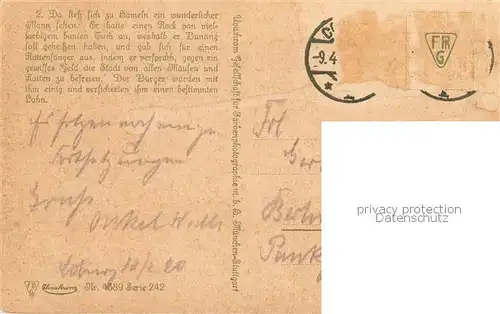 2. Da ließ sich zu Hameln ein wunderlicher
Mann sehen. Er hatte einen Rock von viel-
farbigem bunten Tuch an, weshalb er Bunting
soll geheißen haben, und gab sich für einen
Rattenfänger aus, indem er versprach, gegen ein
gewisses Geld, die Stadt von allen Mäusen und
Ratten zu befreien. Die Bürger wurden mit
ihm einig und versicherten ihm einen bestimmten
Lohn.
Es folgen noch einige
Fortsetzungen
Gruß
Onkel Willi
Coburg
Nr. 4689 Serie 242
Uvachrom Gesellschaft für Farbenphotographie m. b. H. München-Stuttgart
C
-9.4
F R
G
Frl
Ger
Berlin
Pank
privacy protection
Datenschutz
Uvachrom